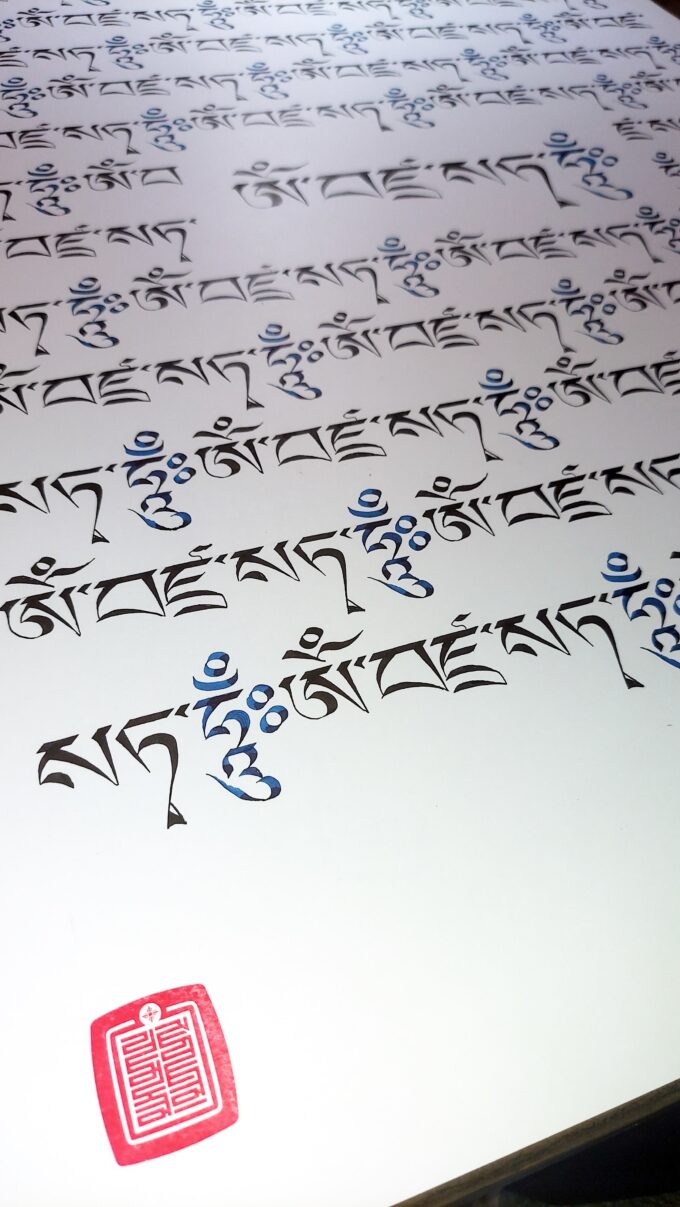 ཧཱུྃ༔ཨོཾ་བཛྲ་སཏྭ་ཧཱུྃ༔ཨོཾ་བཛྲ་སཏྭ་ཧཱུྃ༔
བཛྲ་སཏྭ་ཧཱུྃ༔ཨོཾ་བཛྲ་སཏྭ་ཧཱུྃ༔ཨོཾ་བཛྲ་སཏྭ་
ཧཱུྃ༔ཨོཾ་བཛྲ་སཏྭ་ཧཱུྃ༔ཨོཾ་བཛྲ་སཏྭ་ཧཱུྃ༔
བཛྲ་སཏྭ་ཧཱུྃ༔ཨོཾ་བཛྲ་སཏྭ་ཧཱུྃ༔ཨོཾ་བཛྲ་སཏྭ་ཧཱུྃ༔
ཧཱུྃ༔ཨོཾ་བ
ཨོཾ་བཛྲ་སཏྭ་ཧཱུྃ༔
བཛྲ་སཏྭ་
ཏྭ་ཧཱུྃ༔ཨོཾ་བཛྲ་སཏྭ་ཧཱུྃ༔ཨོཾ་བཛྲ་སཏྭ་ཧཱུྃ༔
ཨོཾ་བཛྲ་སཏྭ་ཧཱུྃ༔ཨོཾ་བཛྲ་སཏྭ་ཧཱུྃ༔ཨོཾ་བ
སཏྭ་ཧཱུྃ༔ཨོཾ་བཛྲ་སཏྭ་ཧཱུྃ༔ཨོཾ་བཛྲ
ཨོཾ་བཛྲ་སཏྭ་ཧཱུྃ༔ཨོཾ་བཛྲ་སཏྭ
སཏྭ་ཧཱུྃ༔ཨོཾ་བཛྲ་སཏྭ་ཧཱུྃ༔